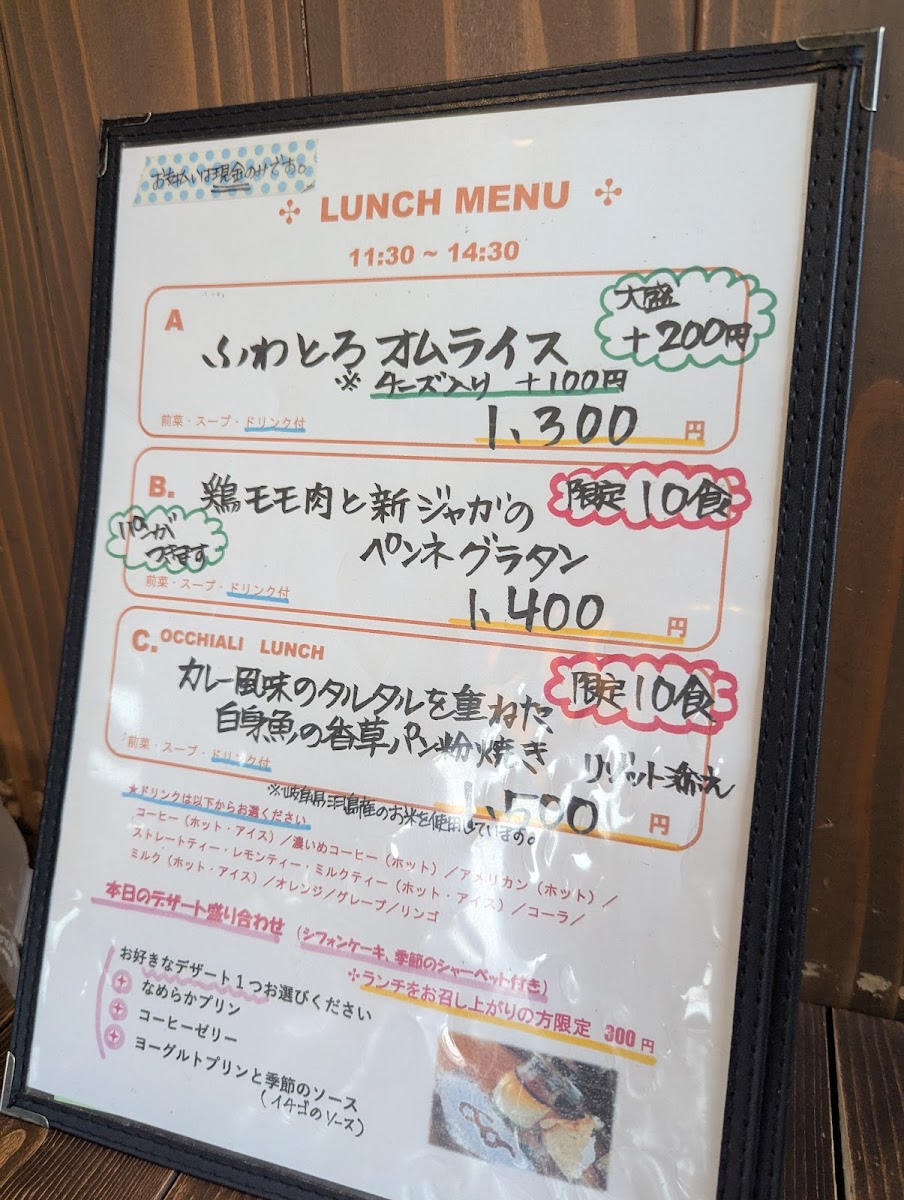 お支払いは現金のみです。
LUNCH MENU
11:30 ~ 14:30
A
大盛
+200円
ふわとろオムライス
※ チーズ入り +100円
前菜・スープ・ドリンク付
1,300円
B.
限定10食
鶏モモ肉と新ジャガの
ペンネグラタン
パンが
つきます
前菜・スープ・ドリンク付
1,400円
C. OCCHIALI LUNCH
限定10食
カレー風味のタルタルを重ねた
白身魚の香草パン粉焼き リゾット添え
前菜・スープ・ドリンク付
1,500円
※岐阜県 産のお米を使用しています。
★ドリンクは以下からお選びください
コーヒー（ホット・アイス）／濃いめコーヒー（ホット）／アメリカン（ホット）／
ストレートティー・レモンティー・ミルクティー（ホット・アイス）／コーラ／
ミルク（ホット・アイス）／オレンジ／グレープ／リンゴ
本日のデザート盛り合わせ （シフォンケーキ、季節のシャーベット付き）
※ランチをお召し上がりの方限定 300円
お好きなデザート１つお選びください
なめらかプリン
コーヒーゼリー
ヨーグルトプリンと季節のソース
（イチゴのソース）